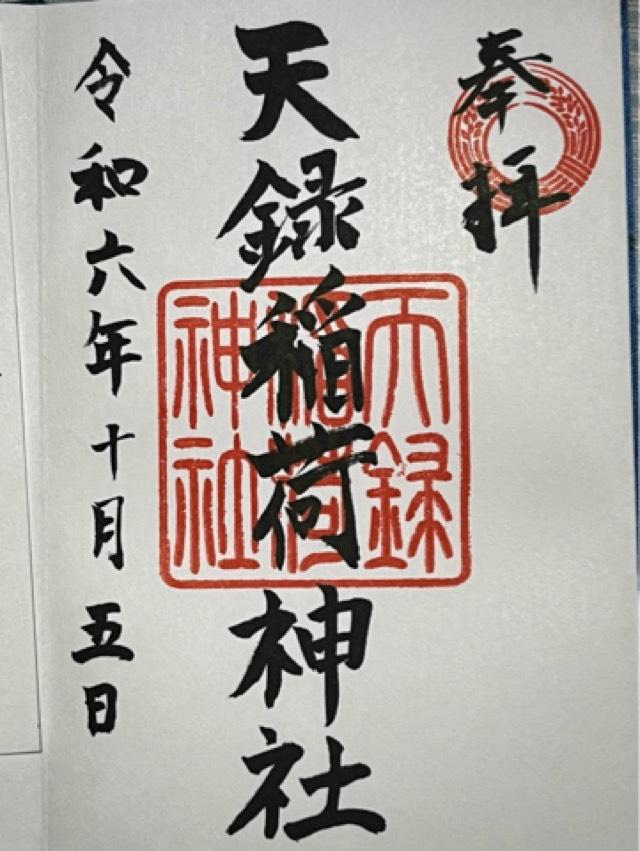 奉拝
天録稲荷神社
天録稲荷神社
令和六年十月五日